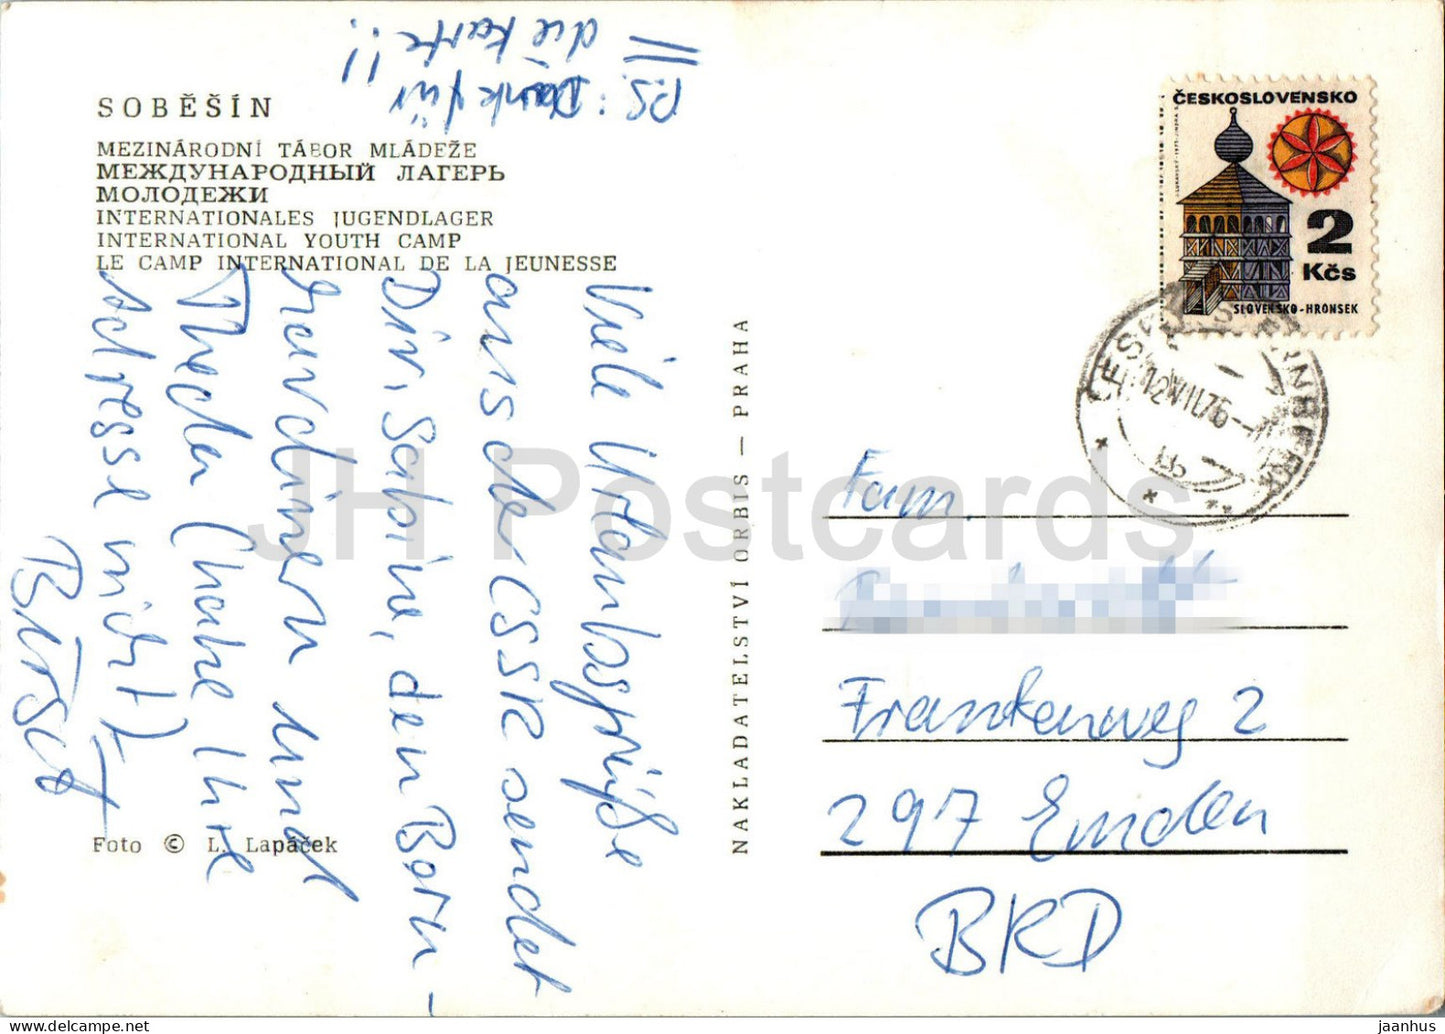 SOBĚŠÍN
MEZINÁRODNÍ TÁBOR MLÁDEŽE
МЕЖДУНАРОДНЫЙ ЛАГЕРЬ
МОЛОДЕЖИ
INTERNATIONALES JUGENDLAGER
INTERNATIONAL YOUTH CAMP
LE CAMP INTERNATIONAL DE LA JEUNESSE
Viele Urlaubsgrüße
aus der CSSR sendet
Dir, Sabine, den Born-
Thekla (habe ihre
Adresse nicht)
PS: Dank für
die Karte!!
Foto © L. Lapáček
NAKLADATELSTVÍ ORBIS — PRAHA
ČESKOSLOVENSKO
2
Kčs
SLOVENSKO-HRONSEK
12.VII.76
Fam.
Frankenweg 2
297 Emden
BRD
JH Postcards
jaanhus www.delcampe.net